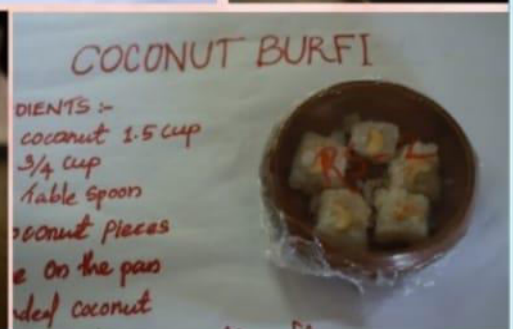 COCONUT BURFI
DIENTS :-
coconut 1.5 cup
3/4 cup
Table Spoon
oconut Pieces
e on the pan
ded coconut